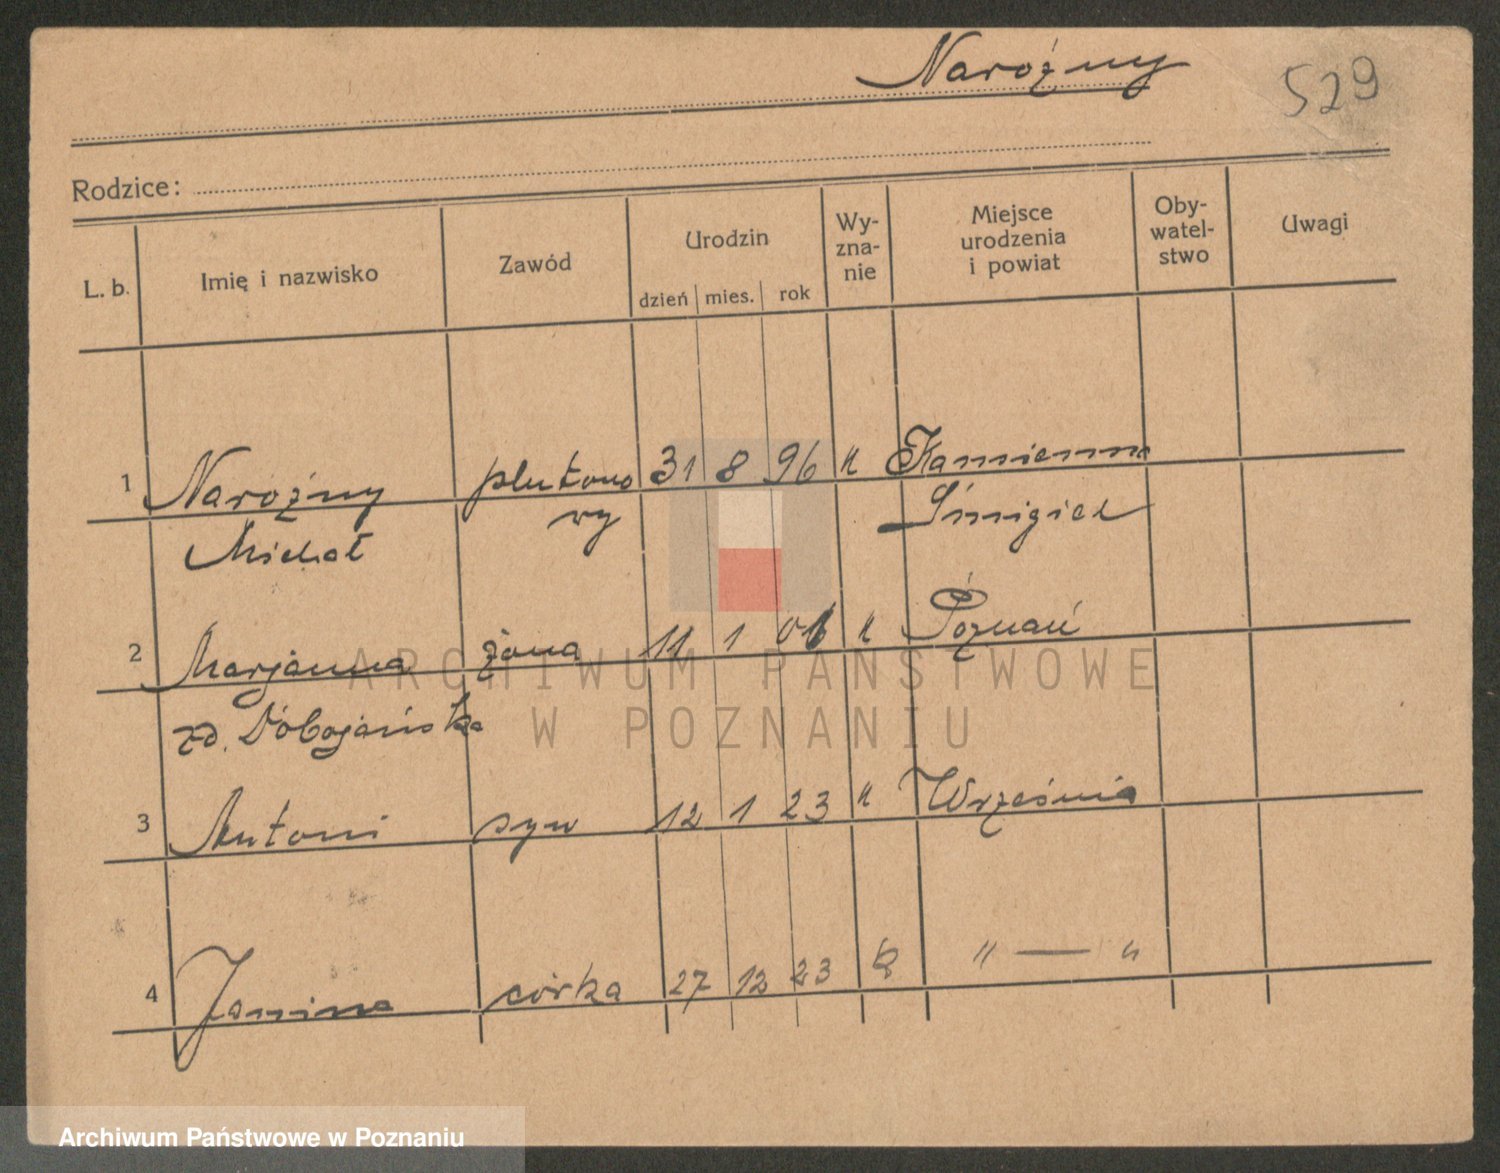 Narożny
529
Rodzice:
L. b. Imię i nazwisko Zawód Urodzin dzień mies. rok Wy-zna-nie Miejsce urodzenia i powiat Oby-watel-stwo Uwagi
1 Narożny plutono 31 8 96 k Kamienna
Michał wy Śmigiel
2 Marjanna żona 11 1 01 k Poznań
zd. Dobojańska
3 Antoni syn 12 1 23 k Września
4 Janina córka 27 12 23 " — "
ARCHIWUM PAŃSTWOWE
W POZNANIU
Archiwum Państwowe w Poznaniu